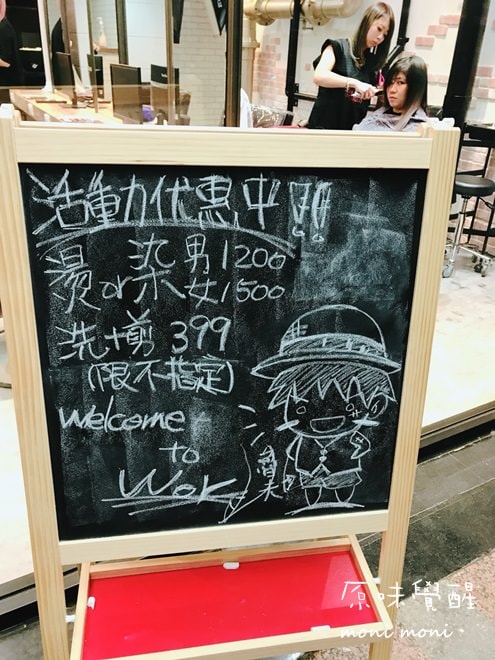 活動优惠中!!
燙or染男1200
女1500
洗+剪399
(限不指定)
Welcome
to
Wor
原味覺醒
moni moni